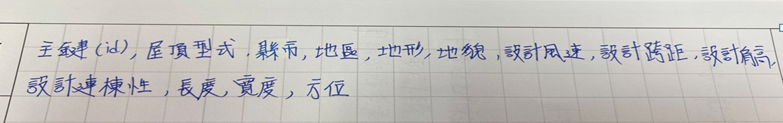 主鍵(id), 屋頂型式, 縣市, 地區, 地形, 地貌, 設計風速, 設計跨距, 設計肩高,
設計連棟性, 長度, 寬度, 方位